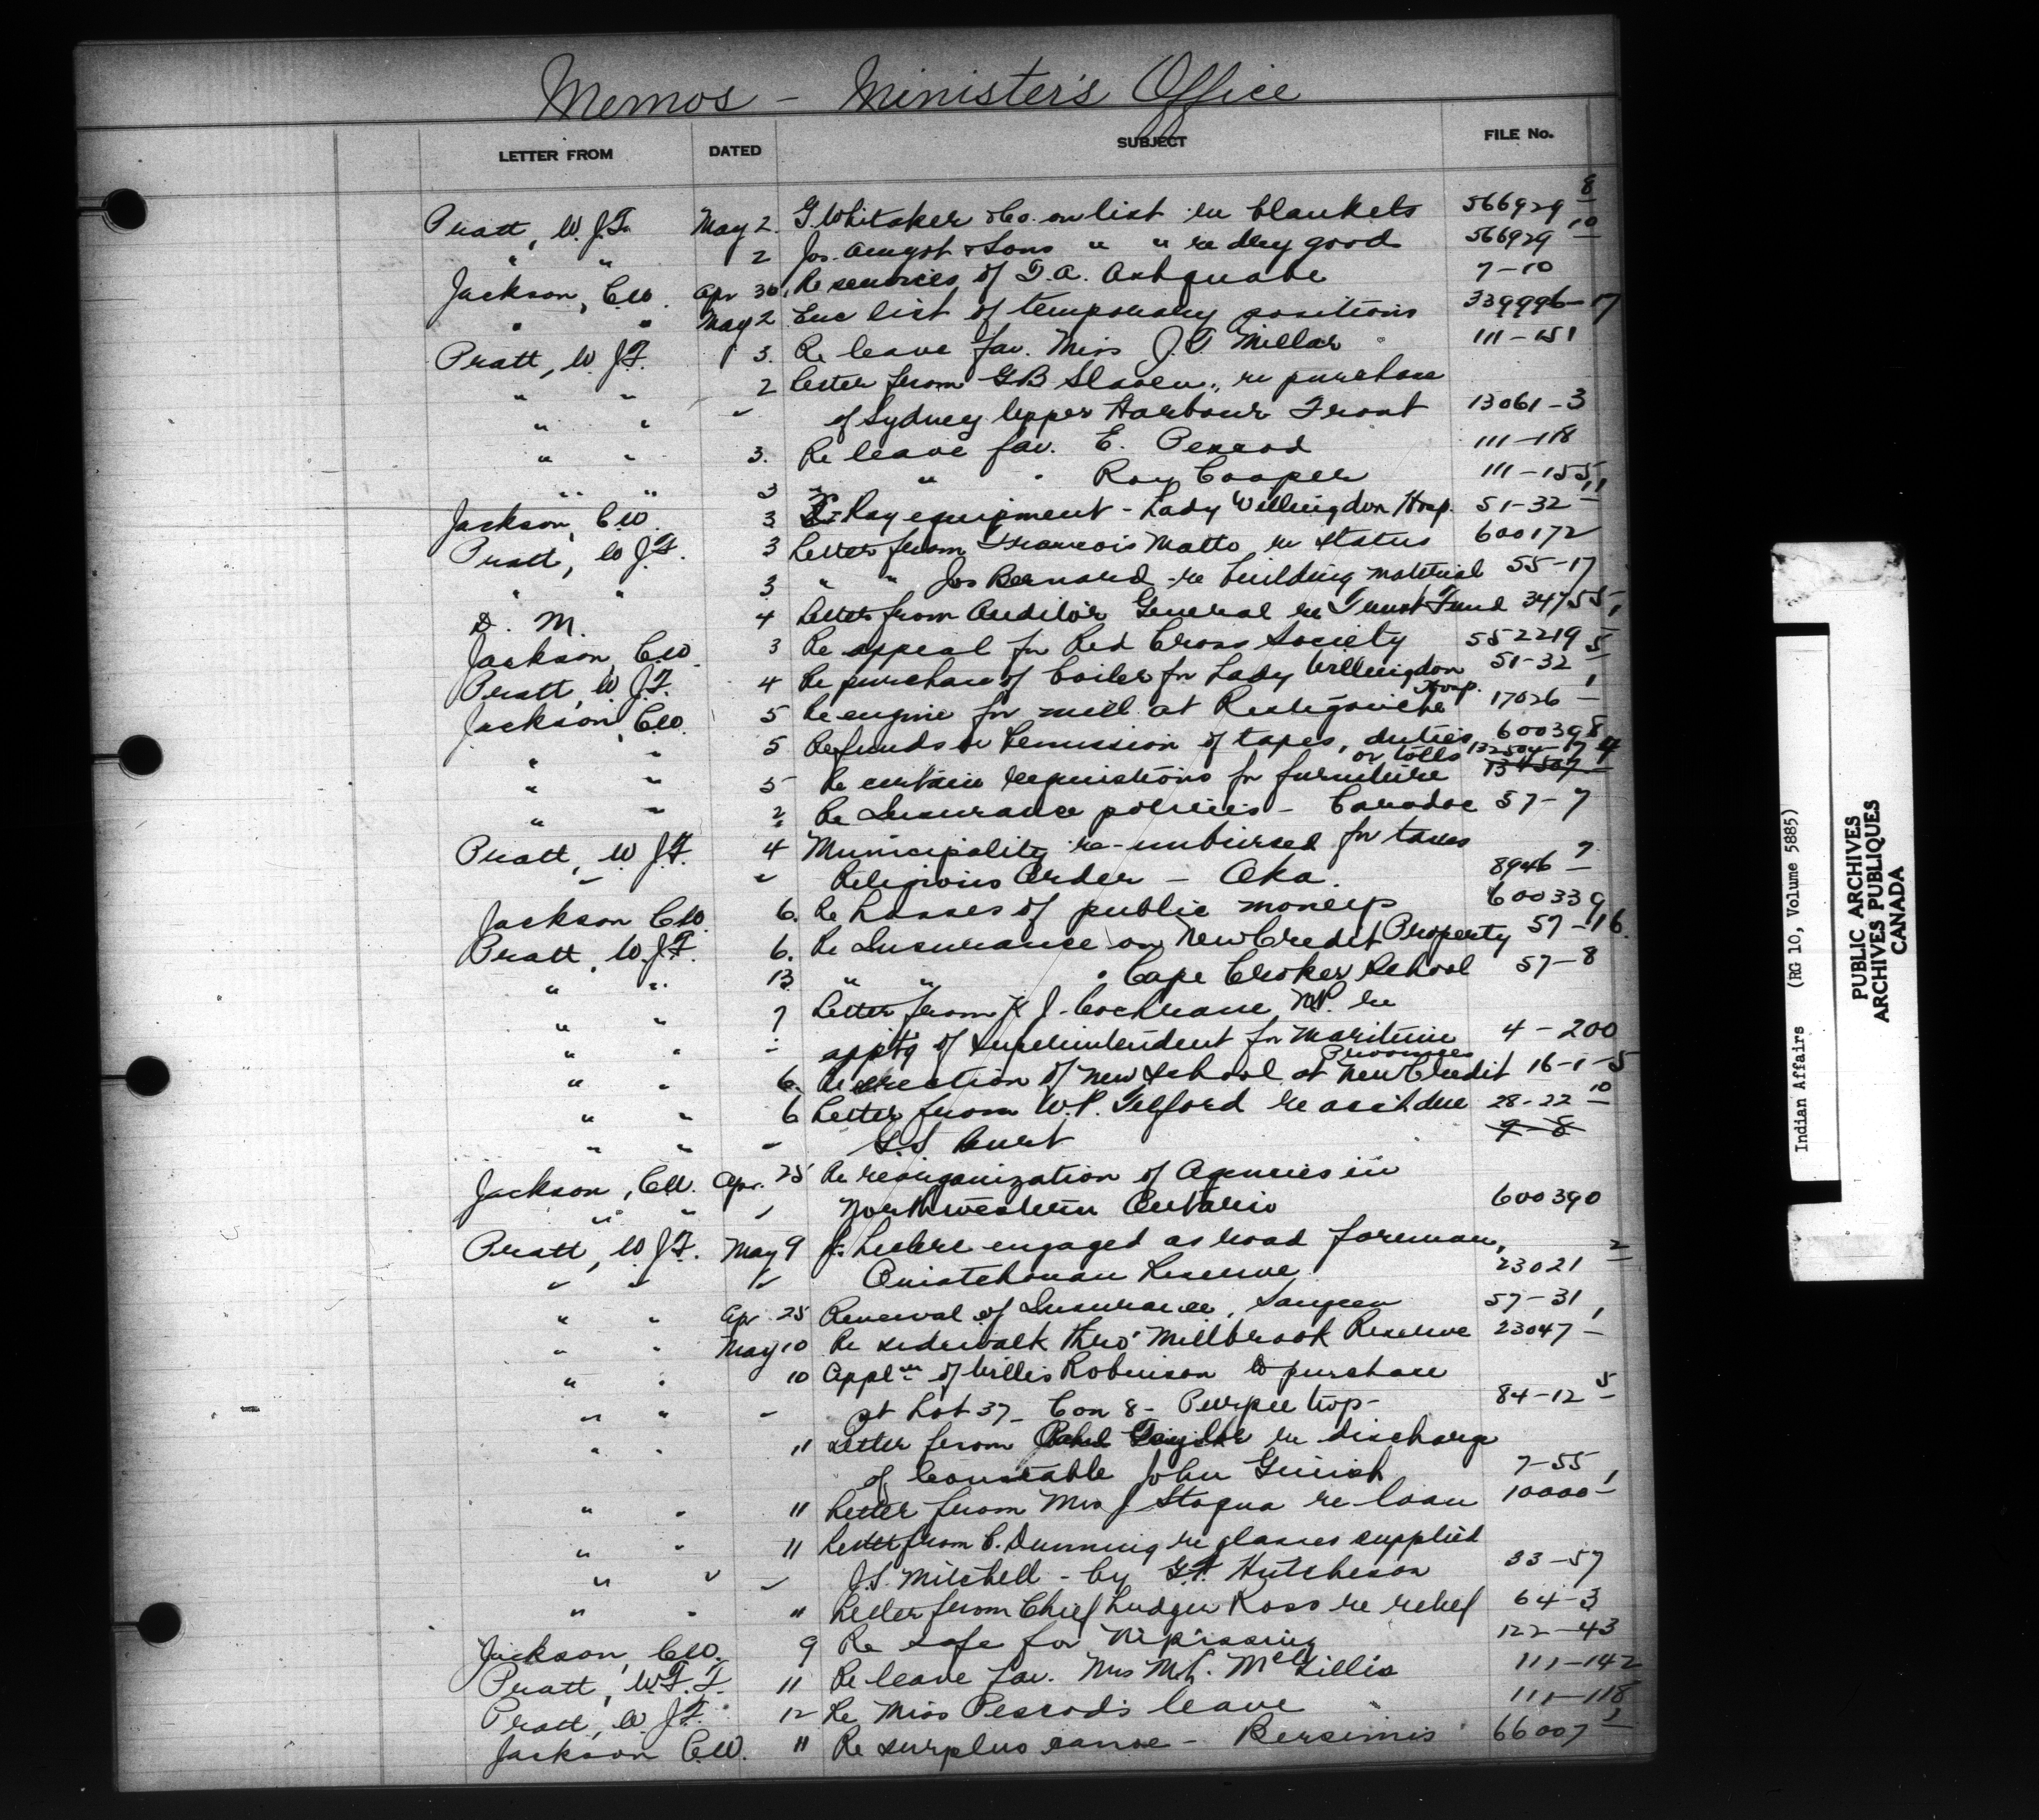 Memos - Minister's Office
LETTER FROM DATED SUBJECT FILE No.
Pratt, W. J. F. May 2. G. Whitaker & Co. on list re blankets 566929 8
" " 2 Jos. Amyot & Sons " " re dry good 566929 10
Jackson, C.W. Apr 30, Re services of F. A. 7-10
" " May 2 Enc list of temporary positions 339996-17
Pratt, W. J. F. 3. Re leave fav. Miss J. T. Millar 111-151
" " 2 Letter from G B Slaven, re purchase
" " " of Sydney Upper Harbour Front 13061-3
" " 3. Re leave fav. E. Pexrod 111-118
" " 3 " " " Roy Cooper 111-155
Jackson, C.W. 3 X-Ray equipment - Lady Willingdon Hosp. 51-32 11
Pratt, W. J. F. 3 Letter from Francois Matto re status 600172
" " 3 " " Jos Bernard - re building material 55-17
D. M. 4 Letter from Auditor General re Trust Fund 34755-1
Jackson, C.W. 3 Re appeal for Red Cross Society 552219
Pratt, W. J. F. 4 Re purchase of boiler for Lady Willingdon Hosp. 51-32 5
Jackson, C.W. 5 Re engine for mill at Restigouche 17026 1
" " 5 Refunds or Remission of taxes, duties or tolls 600398
" " 5 Re certain requisitions for furniture 132504-17 4 134507
" " 2 Re Insurance policies - Caradoc 57-7
Pratt, W. J. F. 4 Municipality re-imbursed for taxes
" " Religious Order - Oka. 8946 7
Jackson C.W. 6. Re Losses of public moneys 600339
Pratt, W. J. F. 6. Re Insurance on New Credit Property 57-16.
" " 13 " " " Cape Croker School 57-8
" " 7 Letter from K J. Cochrane, M.P. re
" " " appt'g of Superintendent for Maritime Provinces 4-200
" " 6. Re erection of new school at New Credit 16-1-5
" " 6 Letter from W. P. Telford re acct due 28-22 10
" " " Burt 7-8
Jackson, C.W. Apr. 25 Re reorganization of Agencies in
" " " Northwestern Ontario 600390
Pratt, W. J. F. May 9 engaged as road foreman,
" " " Ouiatchouan Reserve 23021 2
" " Apr 25 Renewal of Insurance, Saugeen 57-31
" " May 10 Re sidewalk thro' Millbrook Reserve 23047 1
" " 10 Appl'n of Willis Robinson to purchase
" " " pt Lot 37 - Con 8 - Burpee twp - 84-12 5
" " 11 Letter from Taylor re discharge
of Constable John 7-55
" " 11 Letter from Mrs J Stoqua re loan 10000 1
" " 11 Letter from C. Dunning re glasses supplied
" " " J. S. Mitchell - by G. F. Hutcheson 33-57
" " " Letter from Chief Ludger Ross re relief 64-3
Jackson, C.W. 9 Re safe for Nipissing 122-43
Pratt, W. F. F. 11 Re leave fav. Mrs M. L. McGillis 111-142
Pratt, W. J. F. 12 Re Miss Pexrod's leave 111-118
Jackson C.W. 11 Re surplus canoe - Bersimis 66007 1
Indian Affairs (RG 10, Volume 5885)
PUBLIC ARCHIVES
ARCHIVES PUBLIQUES
CANADA